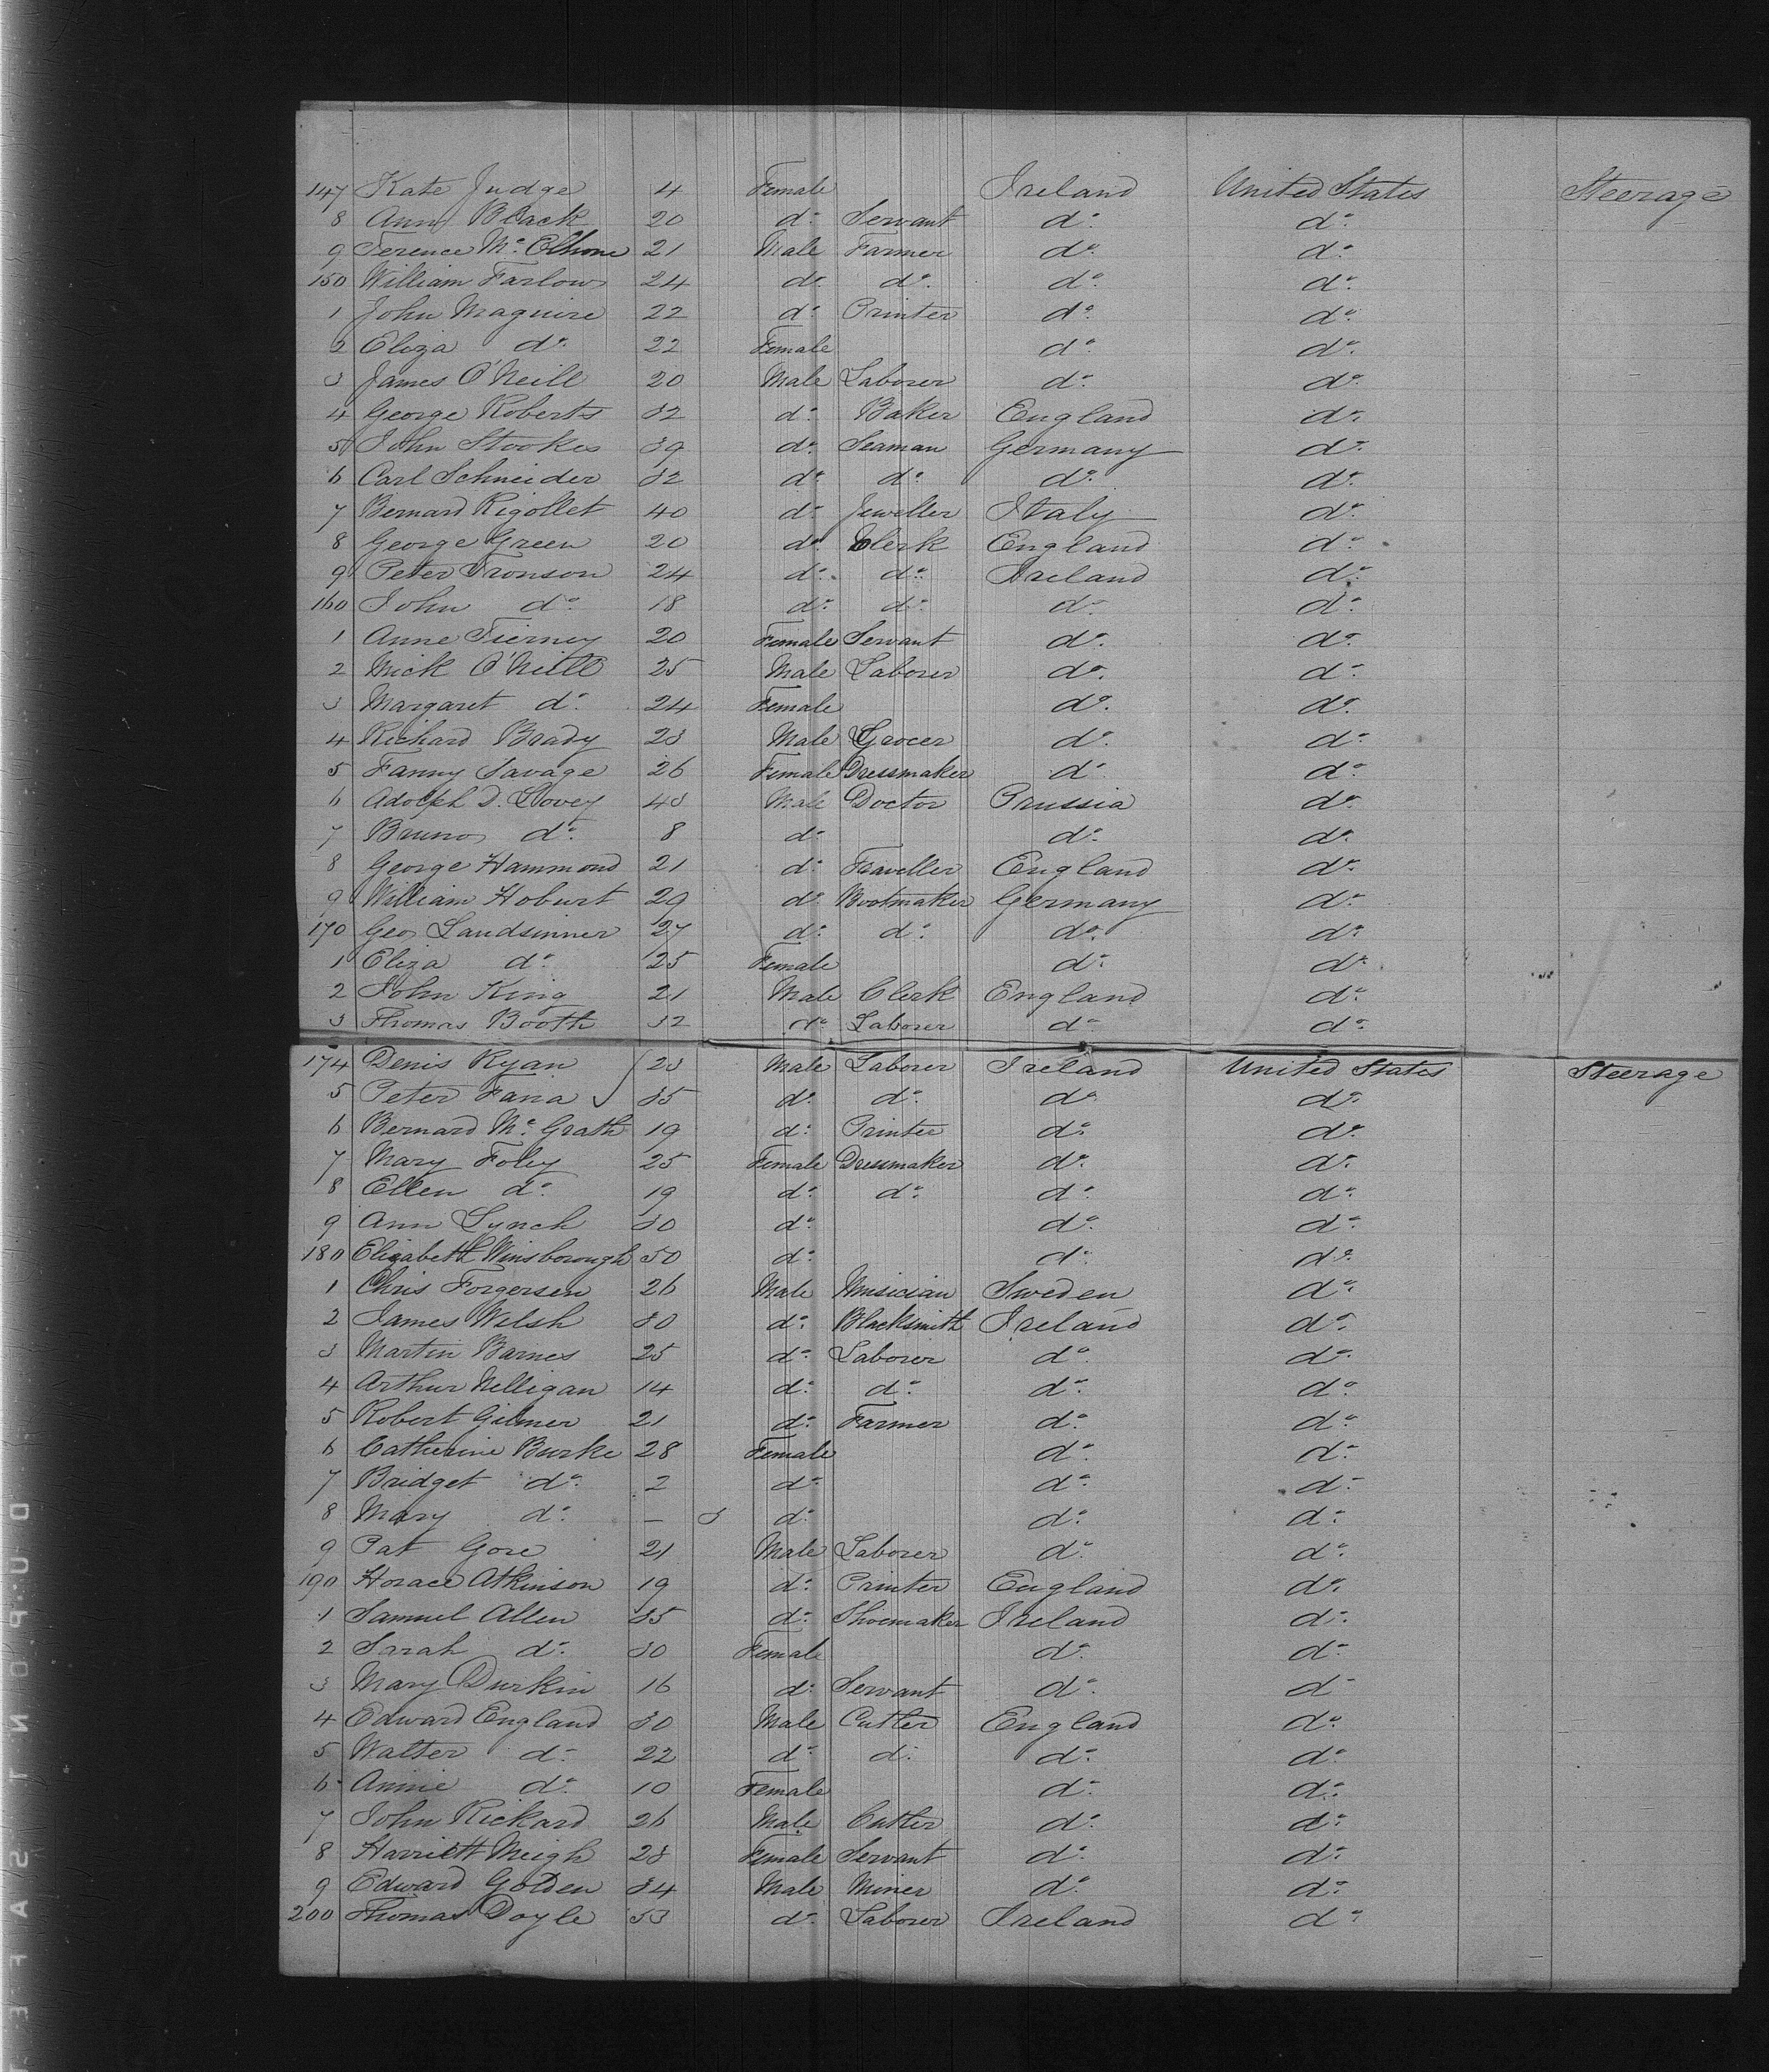 147 Kate Judge 4 Female Ireland United States Steerage
8 Ann Black 20 do Servant do do
9 Terence Mc Elhone 21 Male Farmer do do
150 William Farlow 24 do do do do
1 John Maguire 22 do Printer do do
2 Eliza do 22 Female do do
3 James O'Neill 20 Male Laborer do do
4 George Roberts 32 do Baker England do
5 John Stookes 39 do Seaman Germany do
6 Carl Schneider 32 do do do do
7 Bernard Rigollet 40 do Jeweller Italy do
8 George Green 20 do Clerk England do
9 Peter Tronson 24 do do Ireland do
160 John do 18 do do do do
1 Anne Tierney 20 Female Servant do do
2 Mick O'Neill 25 Male Laborer do do
3 Margaret do 24 Female do do
4 Richard Brady 23 Male Grocer do do
5 Fanny Savage 26 Female Dressmaker do do
6 Adolph D. Lovey 43 Male Doctor Prussia do
7 Bruno do 8 do do do
8 George Hammond 21 do Traveller England do
9 William Hoburt 29 do Bootmaker Germany do
170 Geo Landsinner 27 do do do do
1 Eliza do 25 Female do do
2 John King 21 Male Clerk England do
3 Thomas Booth 32 do Laborer do do
174 Denis Ryan 23 Male Laborer Ireland United States Steerage
5 Peter Faria 35 do do do do
6 Bernard Mc Grath 19 do Printer do do
7 Mary Foley 25 Female Dressmaker do do
8 Ellen do 19 do do do do
9 Ann Lynch 30 do do do
180 Elizabeth Winsborough 50 do do do
1 Chris Forgersen 26 Male Musician Sweden do
2 James Welsh 30 do Blacksmith Ireland do
3 Martin Barnes 25 do Laborer do do
4 Arthur Nelligan 14 do do do do
5 Robert Gilmer 21 do Farmer do do
6 Catherine Burke 28 Female do do
7 Bridget do 2 do do do
8 Mary do — 3 do do do
9 Pat Gore 21 Male Laborer do do
190 Horace Atkinson 19 do Printer England do
1 Samuel Allen 35 do Shoemaker Ireland do
2 Sarah do 30 Female do do
3 Mary Durkin 16 do Servant do do
4 Edward England 30 Male Cutler England do
5 Walter do 22 do do do do
6 Annie do 10 Female do do
7 John Rickard 26 Male Cutler do do
8 Harriett Meigh 23 Female Servant do do
9 Edward Golden 34 Male Miner do do
200 Thomas Doyle 53 do Laborer Ireland do